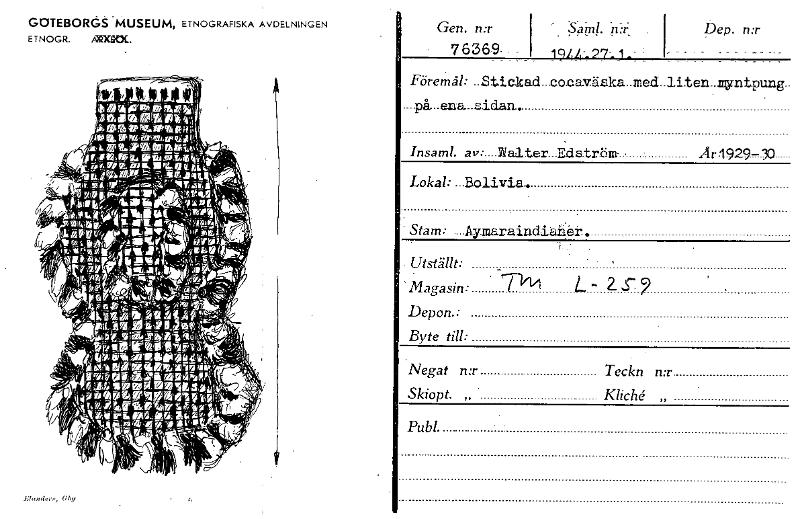 GÖTEBORGS MUSEUM, ETNOGRAFISKA AVDELNINGEN
ETNOGR.
Gen. n:r Saml. n:r Dep. n:r
76369 1944.27.1.
Föremål: Stickad cocaväska med liten myntpung
på ena sidan.
Insaml. av: Walter Edström År 1929-30
Lokal: Bolivia.
Stam: Aymaraindianer.
Utställt:
Magasin: TM L-259
Depon.:
Byte till:
Negat n:r Teckn n:r
Skiopt. „ Kliché „
Publ.
Elanders, Gbg